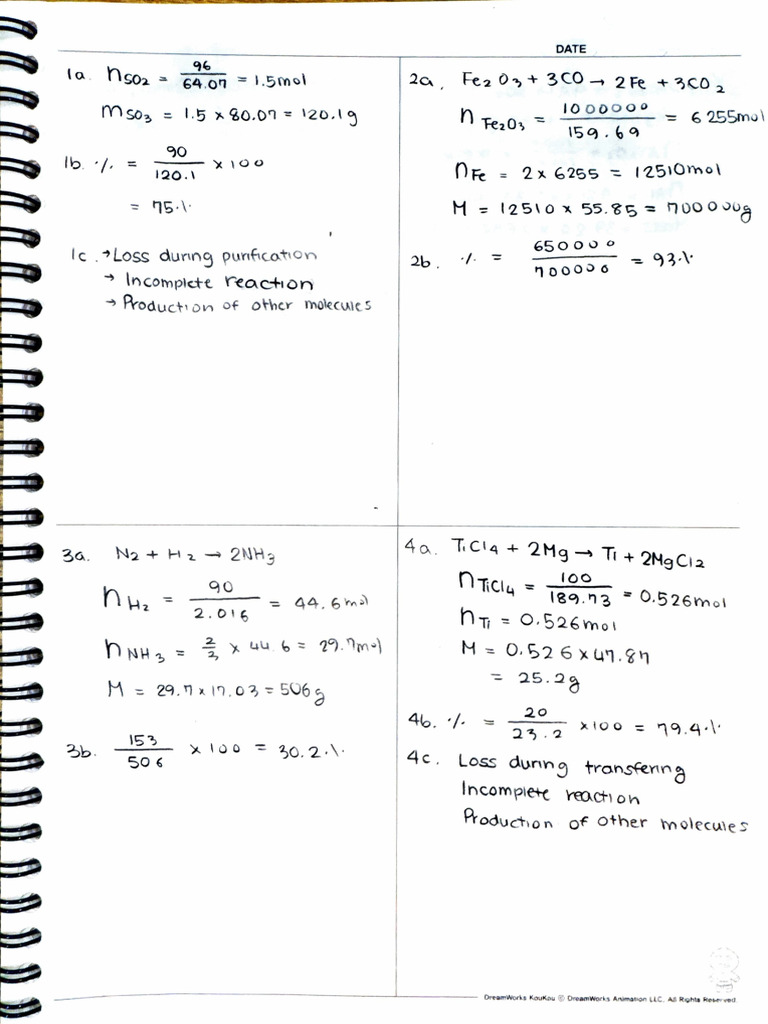 DATE
1a. nSO2 = 96/64.07 = 1.5mol
mSO3 = 1.5 x 80.07 = 120.1g
1b. % = 90/120.1 x 100
= 75%
1c. → Loss during purification
→ Incomplete reaction
→ Production of other molecules
2a. Fe2O3 + 3CO → 2Fe + 3CO2
nFe2O3 = 1000000/159.69 = 6255mol
nFe = 2 x 6255 = 12510mol
M = 12510 x 55.85 = 700000g
2b. % = 650000/700000 = 93%
3a. N2 + H2 → 2NH3
nH2 = 90/2.016 = 44.6mol
nNH3 = 2/3 x 44.6 = 29.7mol
M = 29.7 x 17.03 = 506g
3b. 153/506 x 100 = 30.2%
4a. TiCl4 + 2Mg → Ti + 2MgCl2
nTiCl4 = 100/189.73 = 0.526mol
nTi = 0.526mol
M = 0.526 x 47.87
= 25.2g
4b. % = 20/23.2 x 100 = 79.4%
4c. Loss during transfering
Incomplete reaction
Production of other molecules
DreamWorks KouKou © DreamWorks Animation LLC. All Rights Reserved.